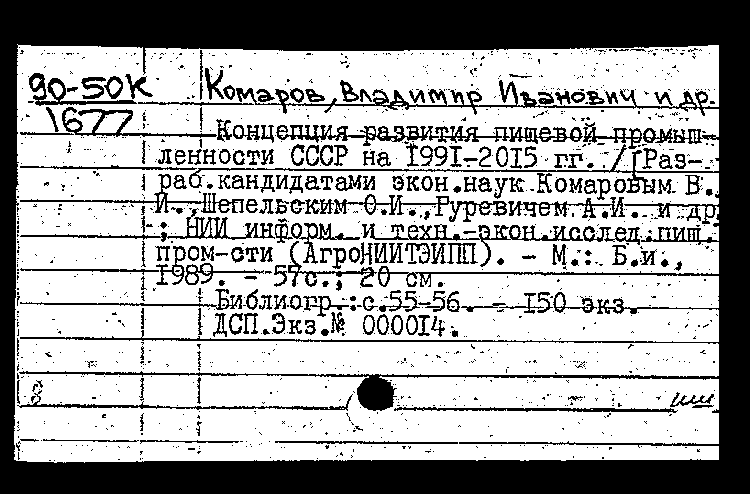 90-50К Комаров, Владимир Иванович и др.
1677
Концепция развития пищевой промыш-
ленности СССР на I99I-20I5 гг. / [Раз-
раб.кандидатами экон.наук Комаровым В.
И.,Шепельским О.И.,Гуревичем А.И. и др
; НИИ информ. и техн.-экон.исслед.пищ.
пром-сти (АгроНИИТЭИПП). - М.: Б.и.,
I989. - 57с.; 20 см.
Библиогр.:с.55-56. - I50 экз.
ДСП.Экз.№ 0000I4.